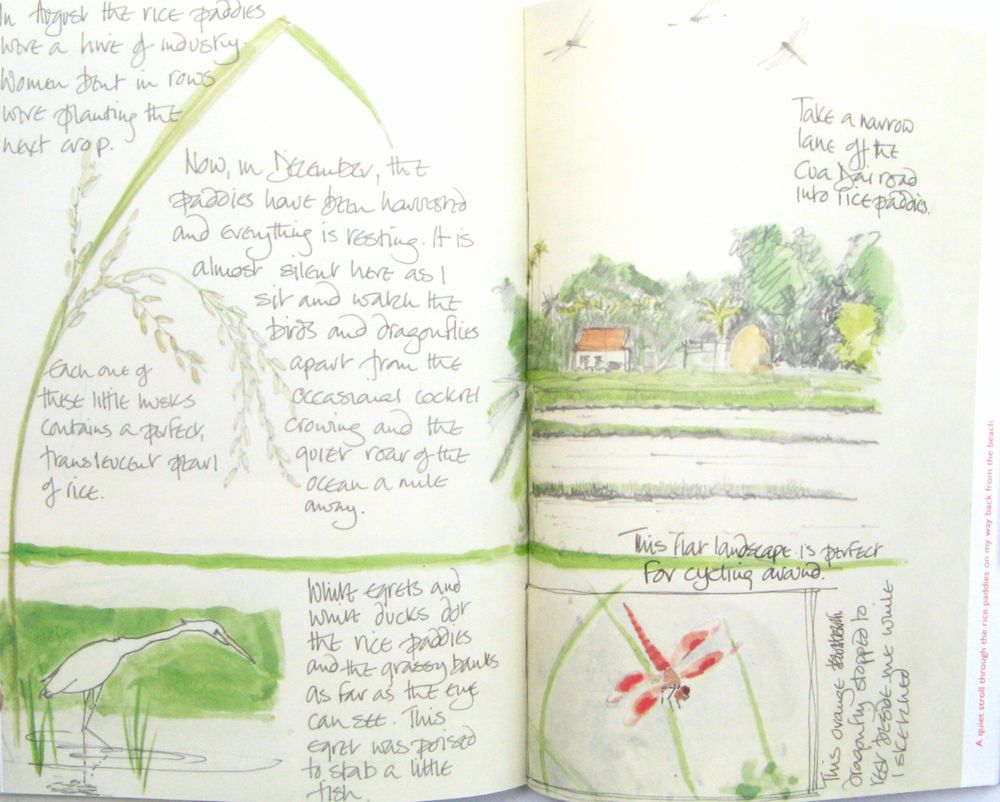 In August the rice paddies
were a hive of industry.
Women bent in rows
were planting the
next crop.
Now, in December, the
paddies have been harvested
and everything is resting. It is
almost silent here as I
sit and watch the
birds and dragonflies
apart from the
occasional cockrel
crowing and the
quiet roar of the
ocean a mile
away.
Each one of
these little husks
contains a perfect,
translucent pearl
of rice.
White egrets and
white ducks dot
the rice paddies
and the grassy banks
as far as the eye
can see. This
egret was poised
to stab a little
fish.
Take a narrow
lane off the
Cua Dai road
into rice paddies.
This flat landscape is perfect
for cycling around.
This orange
dragonfly stopped to
rest beside me while
I sketched
A quiet stroll through the rice paddies on my way back from the beach